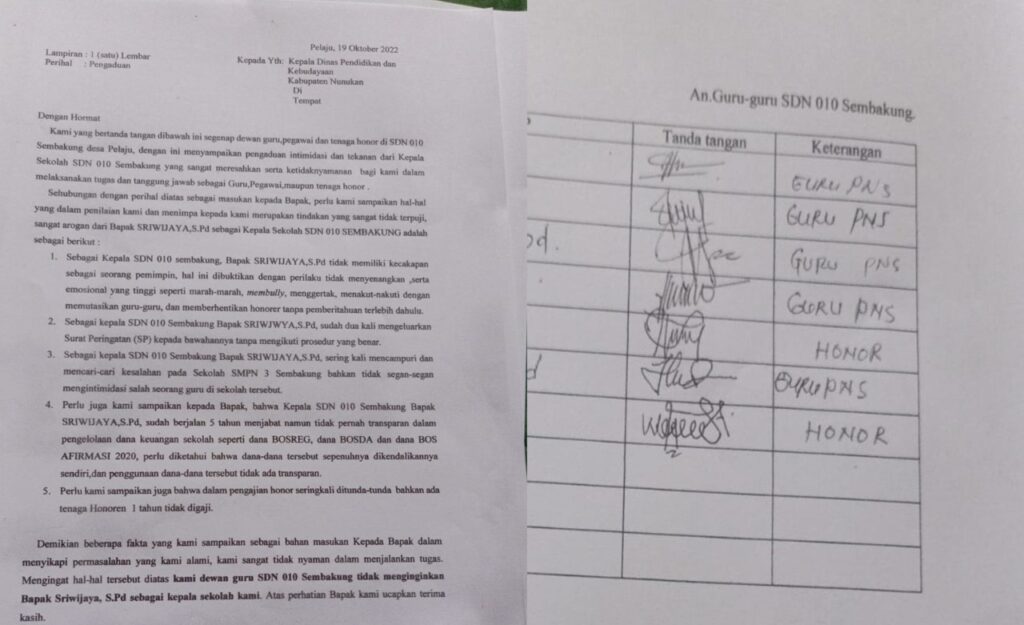 Pelaju, 19 Oktober 2022
Lampiran : 1 (satu) Lembar
Perihal : Pengaduan
Kepada Yth: Kepala Dinas Pendidikan dan
Kebudayaan
Kabupaten Nunukan
Di
Tempat
Dengan Hormat
Kami yang bertanda tangan dibawah ini segenap dewan guru,pegawai dan tenaga honor di SDN 010
Sembakung desa Pelaju, dengan ini menyampaikan pengaduan intimidasi dan tekanan dari Kepala
Sekolah SDN 010 Sembakung yang sangat meresahkan serta ketidaknyamanan bagi kami dalam
melaksanakan tugas dan tanggung jawab sebagai Guru,Pegawai,maupun tenaga honor .
Sehubungan dengan perihal diatas sebagai masukan kepada Bapak, perlu kami sampaikan hal-hal
yang dalam penilaian kami dan menimpa kepada kami merupakan tindakan yang sangat tidak terpuji,
sangat arogan dari Bapak SRIWIJAYA,S.Pd sebagai Kepala Sekolah SDN 010 SEMBAKUNG adalah
sebagai berikut :
1. Sebagai Kepala SDN 010 sembakung, Bapak SRIWIJAYA,S.Pd tidak memiliki kecakapan
sebagai seorang pemimpin, hal ini dibuktikan dengan perilaku tidak menyenangkan ,serta
emosional yang tinggi seperti marah-marah, membully, menggertak, menakut-nakuti dengan
memutasikan guru-guru, dan memberhentikan honorer tanpa pemberitahuan terlebih dahulu.
2. Sebagai kepala SDN 010 Sembakung Bapak SRIWJWYA,S.Pd, sudah dua kali mengeluarkan
Surat Peringatan (SP) kepada bawahannya tanpa mengikuti prosedur yang benar.
3. Sebagai kepala SDN 010 Sembakung Bapak SRIWIJAYA,S.Pd, sering kali mencampuri dan
mencari-cari kesalahan pada Sekolah SMPN 3 Sembakung bahkan tidak segan-segan
mengintimidasi salah seorang guru di sekolah tersebut.
4. Perlu juga kami sampaikan kepada Bapak, bahwa Kepala SDN 010 Sembakung Bapak
SRIWIJAYA,S.Pd, sudah berjalan 5 tahun menjabat namun tidak pernah transparan dalam
pengelolaan dana keuangan sekolah seperti dana BOSREG, dana BOSDA dan dana BOS
AFIRMASI 2020, perlu diketahui bahwa dana-dana tersebut sepenuhnya dikendalikannya
sendiri,dan penggunaan dana-dana tersebut tidak ada transparan.
5. Perlu kami sampaikan juga bahwa dalam pengajian honor seringkali ditunda-tunda bahkan ada
tenaga Honoren 1 tahun tidak digaji.
Demikian beberapa fakta yang kami sampaikan sebagai bahan masukan Kepada Bapak dalam
menyikapi permasalahan yang kami alami, kami sangat tidak nyaman dalam menjalankan tugas.
Mengingat hal-hal tersebut diatas kami dewan guru SDN 010 Sembakung tidak menginginkan
Bapak Sriwijaya, S.Pd sebagai kepala sekolah kami. Atas perhatian Bapak kami ucapkan terima
kasih.
An.Guru-guru SDN 010 Sembakung
Tanda tangan Keterangan
GURU PNS
GURU PNS
od. GURU PNS
GURU PNS
HONOR
d GURU PNS
HONOR